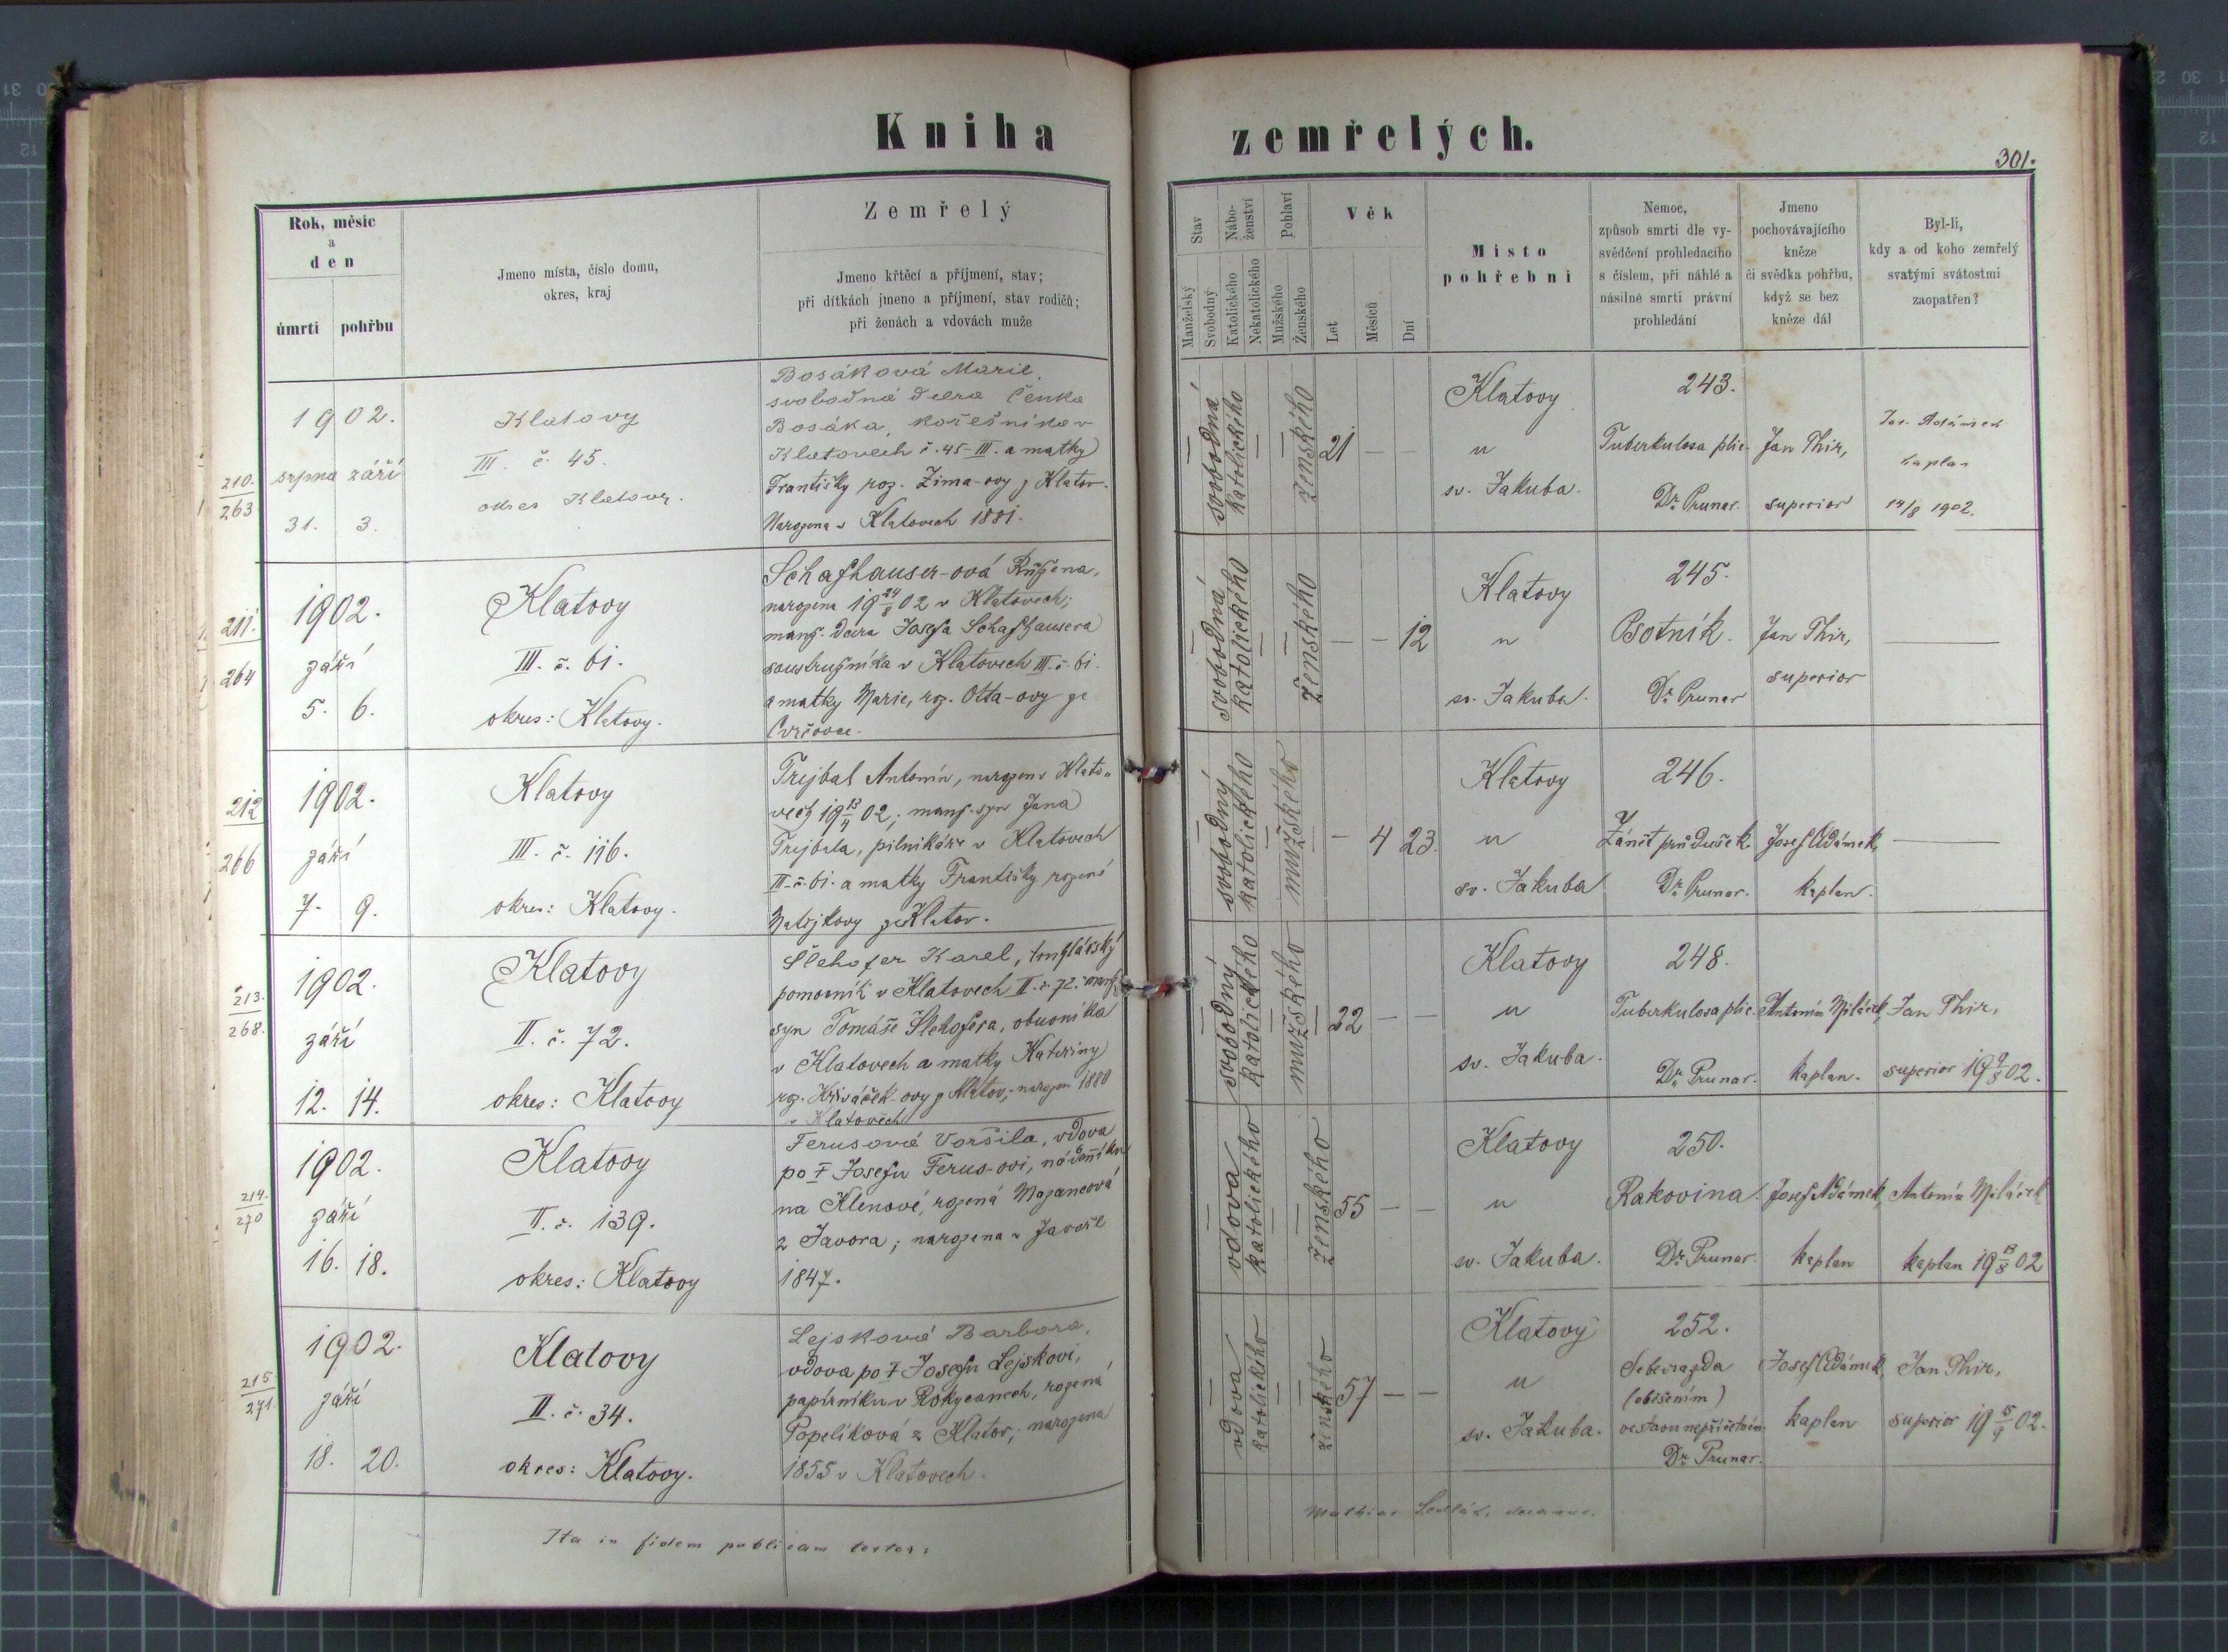 Kniha
zemřelých.
301.
Rok, měsíc
a
den
úmrtí
pohřbu
Jmeno místa, číslo domu,
okres, kraj
Zemřelý
Jmeno křtěcí a příjmení, stav;
při dítkách jmeno a příjmení, stav rodičů;
při ženách a vdovách muže
Stav
Nábo-
ženství
Pohlaví
Manželský
Svobodný
Katolického
Nekatolického
Mužského
Ženského
Věk
Let
Měsíců
Dní
Místo
pohřební
Nemoc,
způsob smrti dle vy-
svědčení prohledacího
s číslem, při náhlé a
násilné smrti právní
prohledání
Jmeno
pochovávajícího
kněze
či svědka pohřbu,
když se bez
kněze dál
Byl-li,
kdy a od koho zemřelý
svatými svátostmi
zaopatřen?
210.
263
1902.
srpna září
31. 3.
Klatovy
III. č. 45.
okres Klatovy.
Bosáková Marie,
svobodná dcera Čenka
Bosáka, košešníka v
Klatovech č. 45-III. a matky
Františky roz. Zima-ovy z Klatov.
Narozena v Klatovech 1881.
svobodná
katolického
ženského
21 — —
Klatovy
u
sv. Jakuba.
243.
Tuberkulosa plic.
Dr. Prunar.
Jan Thir,
superior
Jos. Adámek
kaplan
14/8 1902.
211.
264
1902.
září
5. 6.
Klatovy
III. č. 61.
okres: Klatovy.
Schafhauser-ová Růžena,
narozena 19 24/8 02 v Klatovech;
manž. dcera Josefa Schafhausera
soustružníka v Klatovech III. č. 61.
a matky Marie, roz. Otta-ovy ze
svobodná
katolického
ženského
— — 12
Klatovy
u
sv. Jakuba.
245.
Psotník.
Dr. Prunar
Jan Thir,
superior
212
266
1902.
září
7. 9.
Klatovy
III. č. 116.
okres: Klatovy.
Trejbal Antonín, narozen v Klato-
vech 19 02; manž. syn Jana
Trejbala, pilnikáře v Klatovech
III. č. 61. a matky Františky rozené
Matějkovy ze Klatov.
svobodný
katolického
mužského
— 4 23.
Klatovy
u
sv. Jakuba
246.
Zánět průdušek.
Dr. Prunar.
Josef Adámek,
kaplan.
213.
268.
1902.
září
12. 14.
Klatovy
II. č. 72.
okres: Klatovy
Šlehofer Karel, truhlářský
pomocník v Klatovech II. č. 72. manž.
syn Tomáše Šlehofera, obuvníka
v Klatovech a matky Kateřiny
roz. Křiváček-ovy z Klatov; narozen 1880
v Klatovech
svobodný
katolického
mužského
22 — —
Klatovy
u
sv. Jakuba.
248.
Tuberkulosa plic.
Dr. Prunar.
Antonín Miláček,
kaplan.
Jan Thir,
superior 19 9/8 02.
214.
270
1902.
září
16. 18.
Klatovy
II. č. 139.
okres: Klatovy
Ferusová Voršila, vdova
po † Josefu Ferus-ovi,
na Klenové, rozená
z Javora; narozena v Javoře
1847.
vdova
katolického
ženského
55 — —
Klatovy
u
sv. Jakuba.
250.
Rakovina.
Dr. Prunar.
Josef Adámek,
kaplan
Antonín Miláček
kaplan 19 13/8 02
215
271.
1902.
září
18. 20.
Klatovy
II. č. 34.
okres: Klatovy.
Lejsková Barbora,
vdova po † Josefu Lejskovi,
papírníku v Rokycanech, rozená
Popelíková z Klatov; narozena
1855 v Klatovech.
vdova
katolického
ženského
57 — —
Klatovy
u
sv. Jakuba.
252.
Sebevražda
(oběšením)
ve stavu nepříčetném
Dr. Prunar.
Josef Adámek,
kaplan
Jan Thir,
superior 19 15/9 02.
Ita in fidem publicam testor:
Mathias Sedlák,